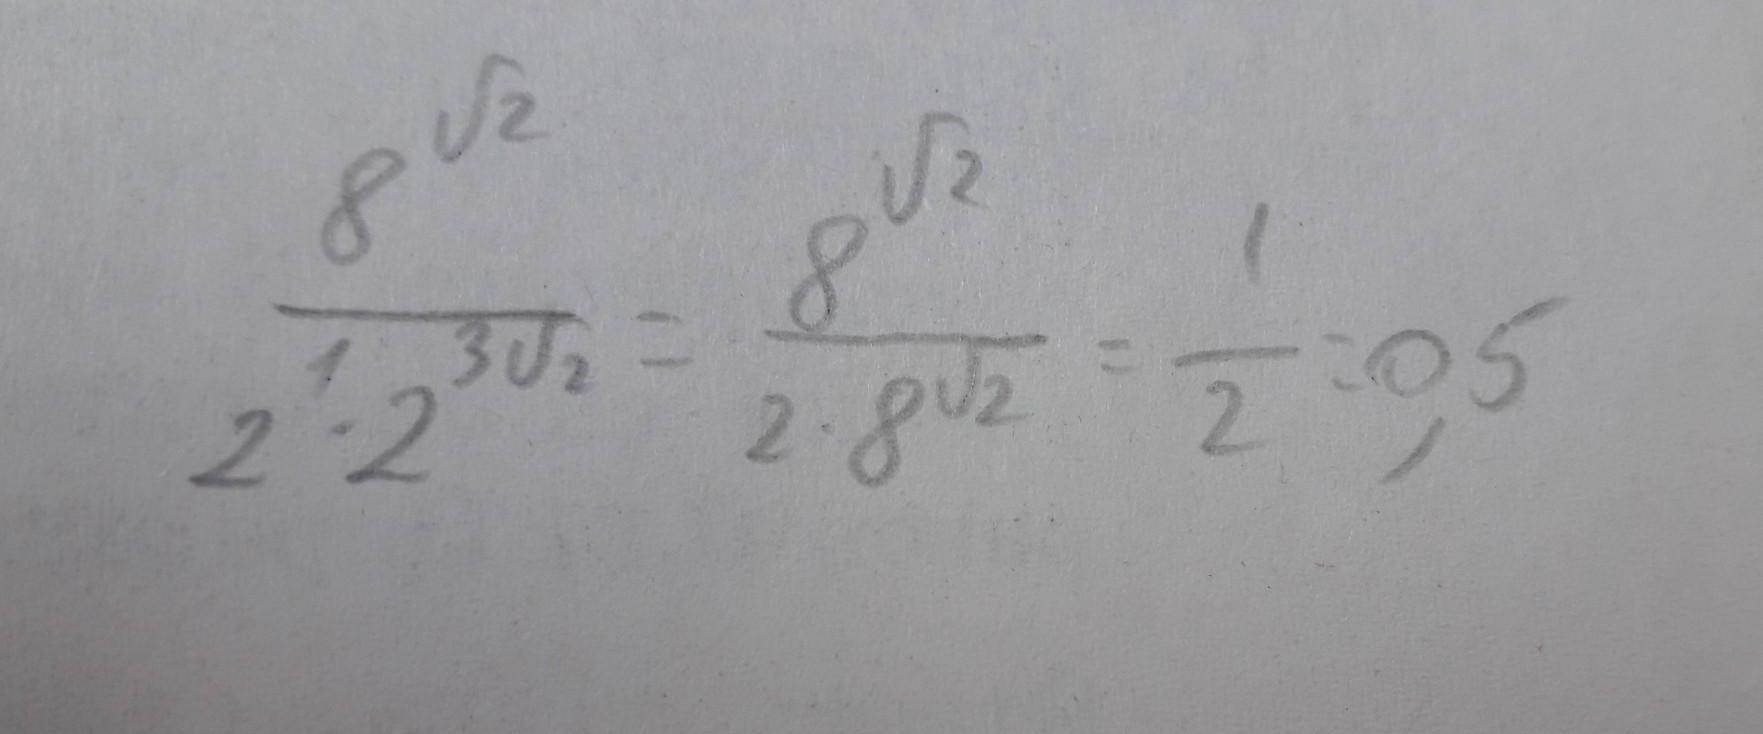 8^√2 / (2^1 · 2^(3√2)) = 8^√2 / (2 · 8^√2) = 1/2 = 0,5